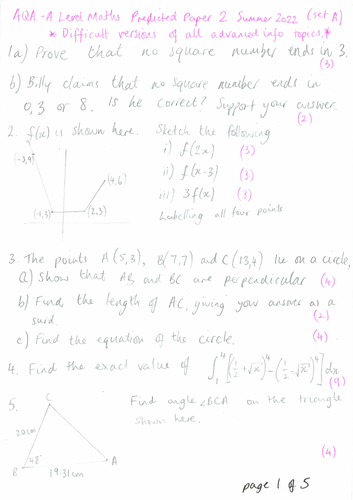 AQA-A Level Maths Predicted Paper 2 Summer 2022 (set A)
* Difficult versions of all advanced info topics.*
1a) Prove that no square number ends in 3.
(3)
b) Billy claims that no square number ends in
0, 3 or 8. Is he correct? Support your answer.
(2)
2. f(x) is shown here. Sketch the following
i) f(2x) (3)
ii) f(x-3) (3)
iii) 3f(x) (3)
Labelling all four points
(-3,9)
(4,6)
(-1,3)
(2,3)
3. The points A(5,3), B(7,7) and C(13,4) lie on a circle,
a) Show that AB and BC are perpendicular (4)
b) Find the length of AC, giving your answer as a
surd. (2)
c) Find the equation of the circle. (4)
4. Find the exact value of ∫₁⁴ [(1/2 + √x)⁴ - (1/2 - √x)⁴] dx
(9)
5. Find angle ∠BCA on the triangle
shown here.
(4)
C
20cm
48°
B
19.31cm
A
page 1 of 5